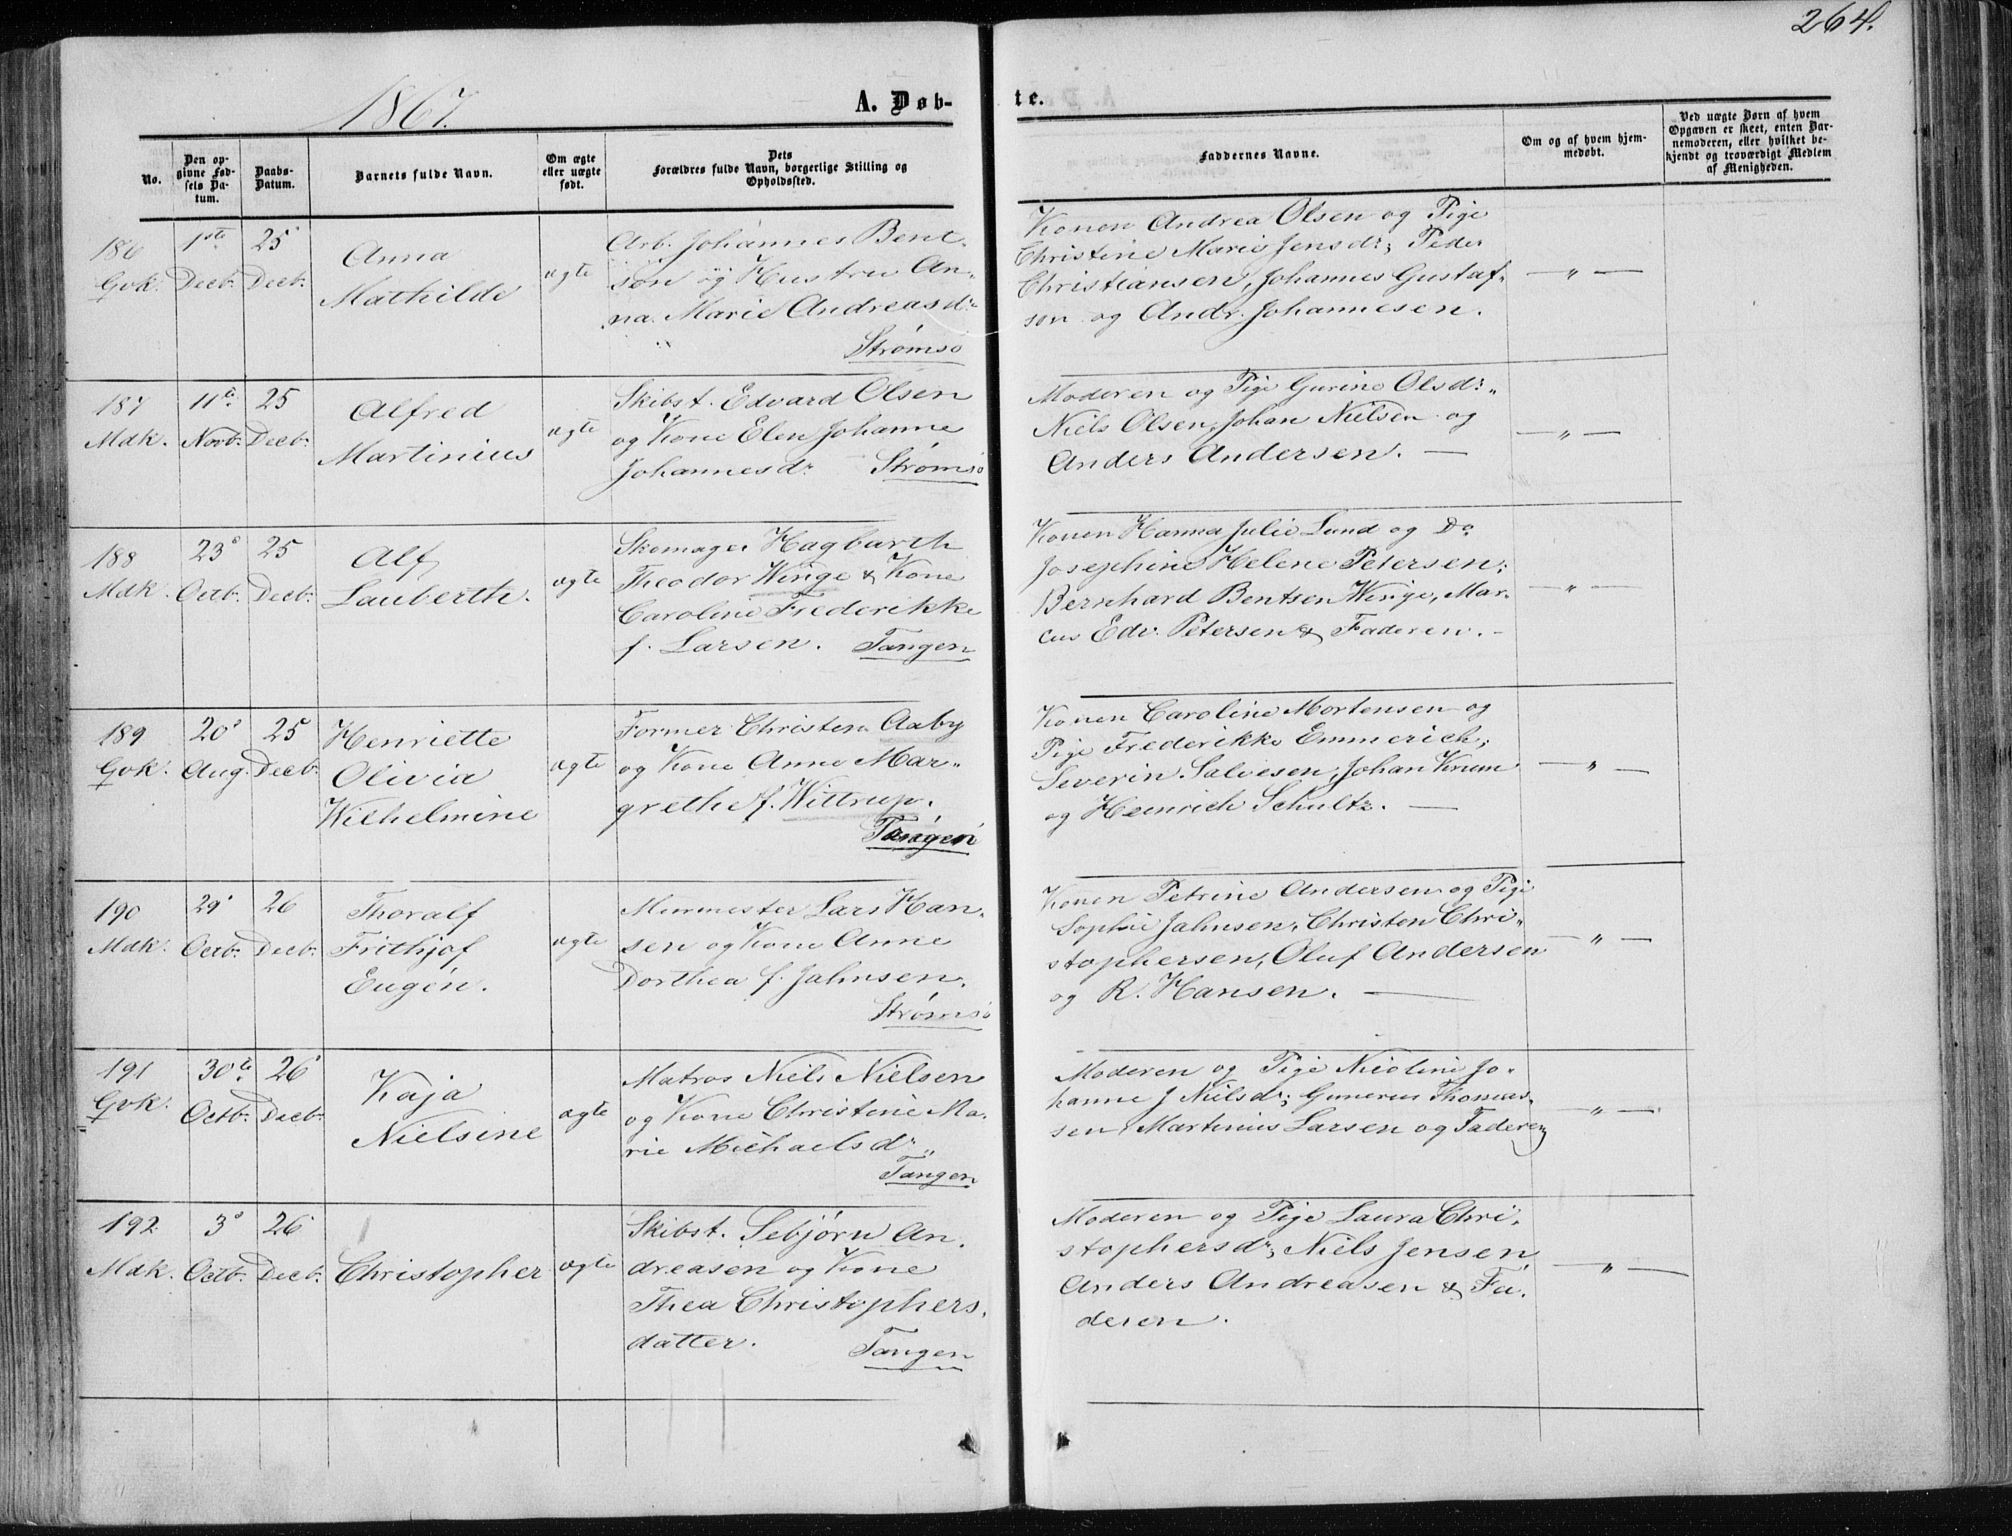 264.
1867.
A. Døb-
te.
No.
Den op-
givne Fød-
sels Da-
tum.
Daabs-
Datum.
Barnets fulde Navn.
Om ægte
eller uægte
født.
Dets
Forældres fulde Navn, borgerlige Stilling og
Opholdssted.
Faddernes Navne.
Om og af hvem hjem-
medøbt.
Ved uægte Børn af hvem
Opgaven er skeet, enten Bar-
nemoderen, eller hvilket be-
kjendt og troværdigt Medlem
af Menigheden.
186
Qvk.
1ste
Decb.
25
Decb.
Anna
Mathilde
ægte
Arb. Johannes Bent-
son og Hustru An-
na Marie Andreasdr.
Strømsø
Konen Andrea Olsen og Pige
Christine Marie Jensdr; Peder
Christiansen, Johannes Gustaf-
son og Andr. Johannesen.
— „ —
187
Mdk.
11te
Novb.
25
Decb.
Alfred
Martinius
ægte
Skibst. Edvard Olsen
og Kone Elen Johanne
Johannesdr. Strømsø
Moderen og Pige Gurine Olsdr.
Niels Olsen, Johan Nielsen og
Anders Andersen. —
— „ —
188
Mdk.
23
Octb.
25
Decb.
Alf
Lauberth.
ægte
Skomager Hagbarth
Theodor Winge & Kone
Caroline Frederikke
f. Larsen. Tangen
Konen Hanna Julie Lund og Do
Josephine Helene Petersen;
Bernhard Bentsen Winge, Mar-
cus Edv. Petersen & Faderen. -
— „ —
189
Qvk.
20
Aug.
25
Decb.
Henriette
Olivia
Wilhelmine
ægte
Former Christen Aaby
og Kone Anne Mar-
grethe f. Wittrup.
Tangen
Konen Caroline Mortensen og
Pige Frederikke Emmerich;
Severin Salvesen, Johan Krum
og Heinrich Schultz. —
— „ —
190
Mdk.
29
Octb.
26
Decb.
Thoralf
Frithjof
Eugén.
ægte
Minmester Lars Han-
sen og Kone Anne
Dorthea f. Jahnsen.
Strømsø
Konen Petrine Andersen og Pige
Sophie Jahnsen, Christen Chri-
stophersen, Oluf Andersen
og R. Hansen. —
— „ —
191
Qvk.
30te
Octb.
26
Decb.
Kaja
Nielsine
ægte
Matros Niels Nielsen
og Kone Christine Ma-
rie Michaelsdr.
Tangen
Moderen og Pige Nicoline Jo-
hanne J Nielsdr; Gunerus Thomas-
sen, Martinius Larsen og Faderen
— „ —
192
Mdk.
3
Octb.
26
Decb.
Christopher
ægte
Skibst. Sebjørn An-
dreasen og Kone
Thea Christophers-
datter. Tangen
Moderen og Pige Laura Chri-
stophersdr, Niels Jensen
Anders Andreasen & Fa-
deren.
— „ —